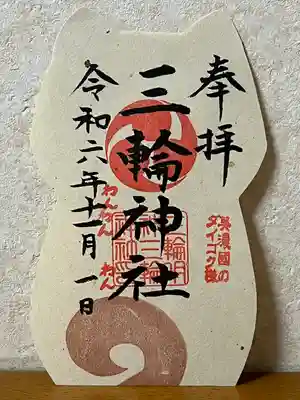 奉拝
美濃國の
ダイコク様
三輪神社
令和六年十一月一日
わんわん
わん